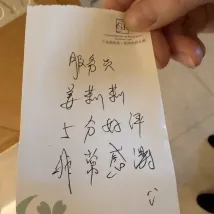 服务员
姜莉莉
5分好评
非常感谢